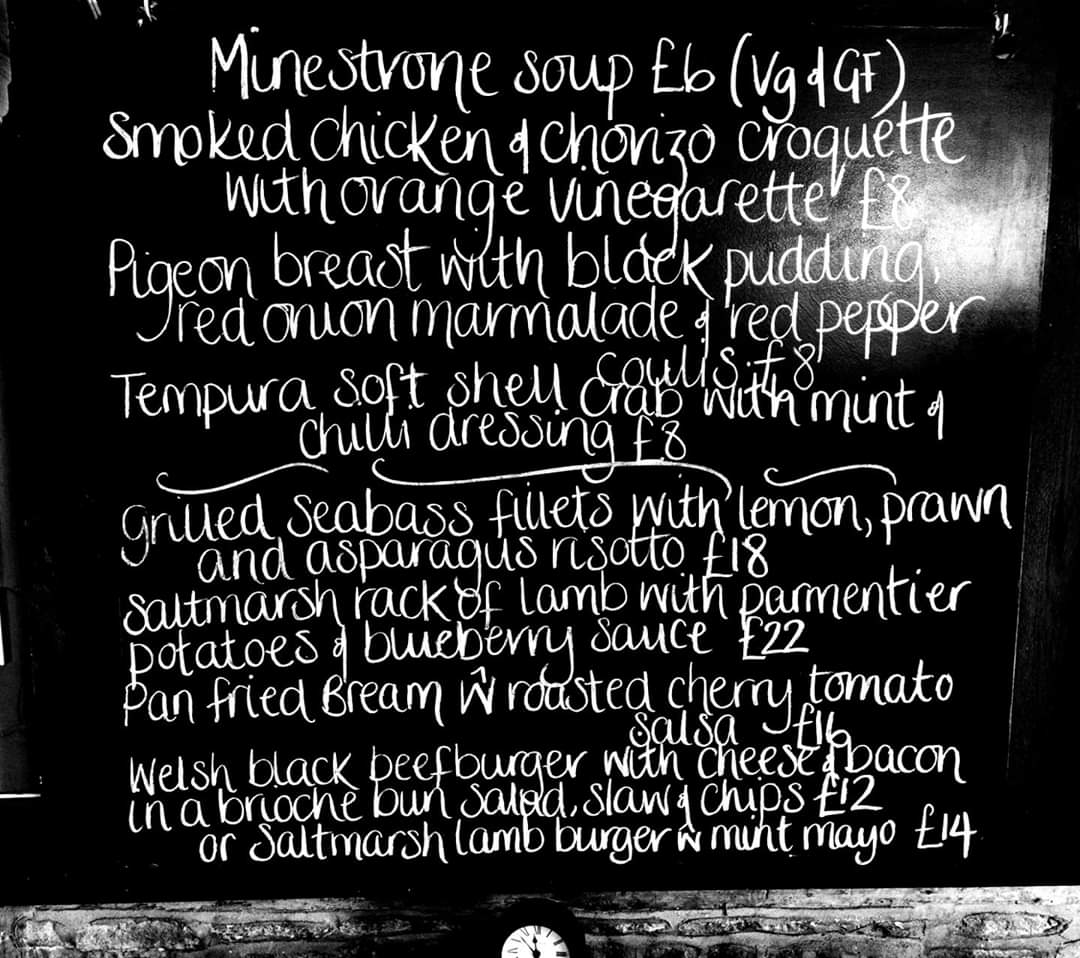 Minestrone soup £6 (Vg & GF)
Smoked chicken & chorizo croquette
with orange vinegarette £8
Pigeon breast with black pudding,
red onion marmalade & red pepper
coulis. £8
Tempura soft shell crab with mint &
chilli dressing £8
Grilled seabass fillets with lemon, prawn
and asparagus risotto £18
Saltmarsh rack of lamb with parmentier
potatoes & blueberry sauce £22
Pan fried Bream ŵ roasted cherry tomato
salsa £16
Welsh black beefburger with cheese & bacon
in a brioche bun salad, slaw & chips £12
or Saltmarsh lamb burger ŵ mint mayo £14